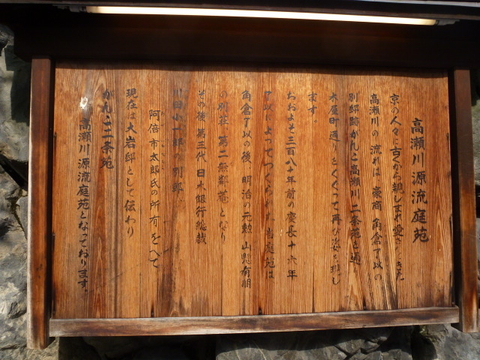 高瀬川源流庭苑
京の人々に古くから親しまれ愛された
高瀬川の流れは豪商 角倉了以の
別邸跡がんこ高瀬川二条苑を通り
木屋町通りをくぐって再び姿を現し
ます。
およそ三百八十年前の慶長十六年
了以によってつくられた庭苑は
角倉了以の後 明治の元勲 山県有朋
の別荘 第二無鄰菴となり
その後 第三代 日本銀行総裁
川田小一郎の別邸
阿倍市太郎氏の所有をへて
現在は大岩邸として伝わり
がんこ二条苑
高瀬川源流庭苑となっております。